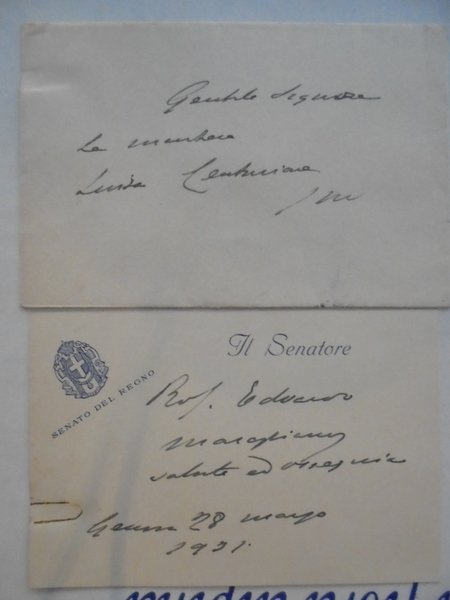 Gentile Signora
La marchesa
Luisa Centurione
S.M.
Il Senatore
SENATO DEL REGNO
Prof. Edoardo
Maragliano
saluta ed ossequia
Genova 28 marzo
1931.